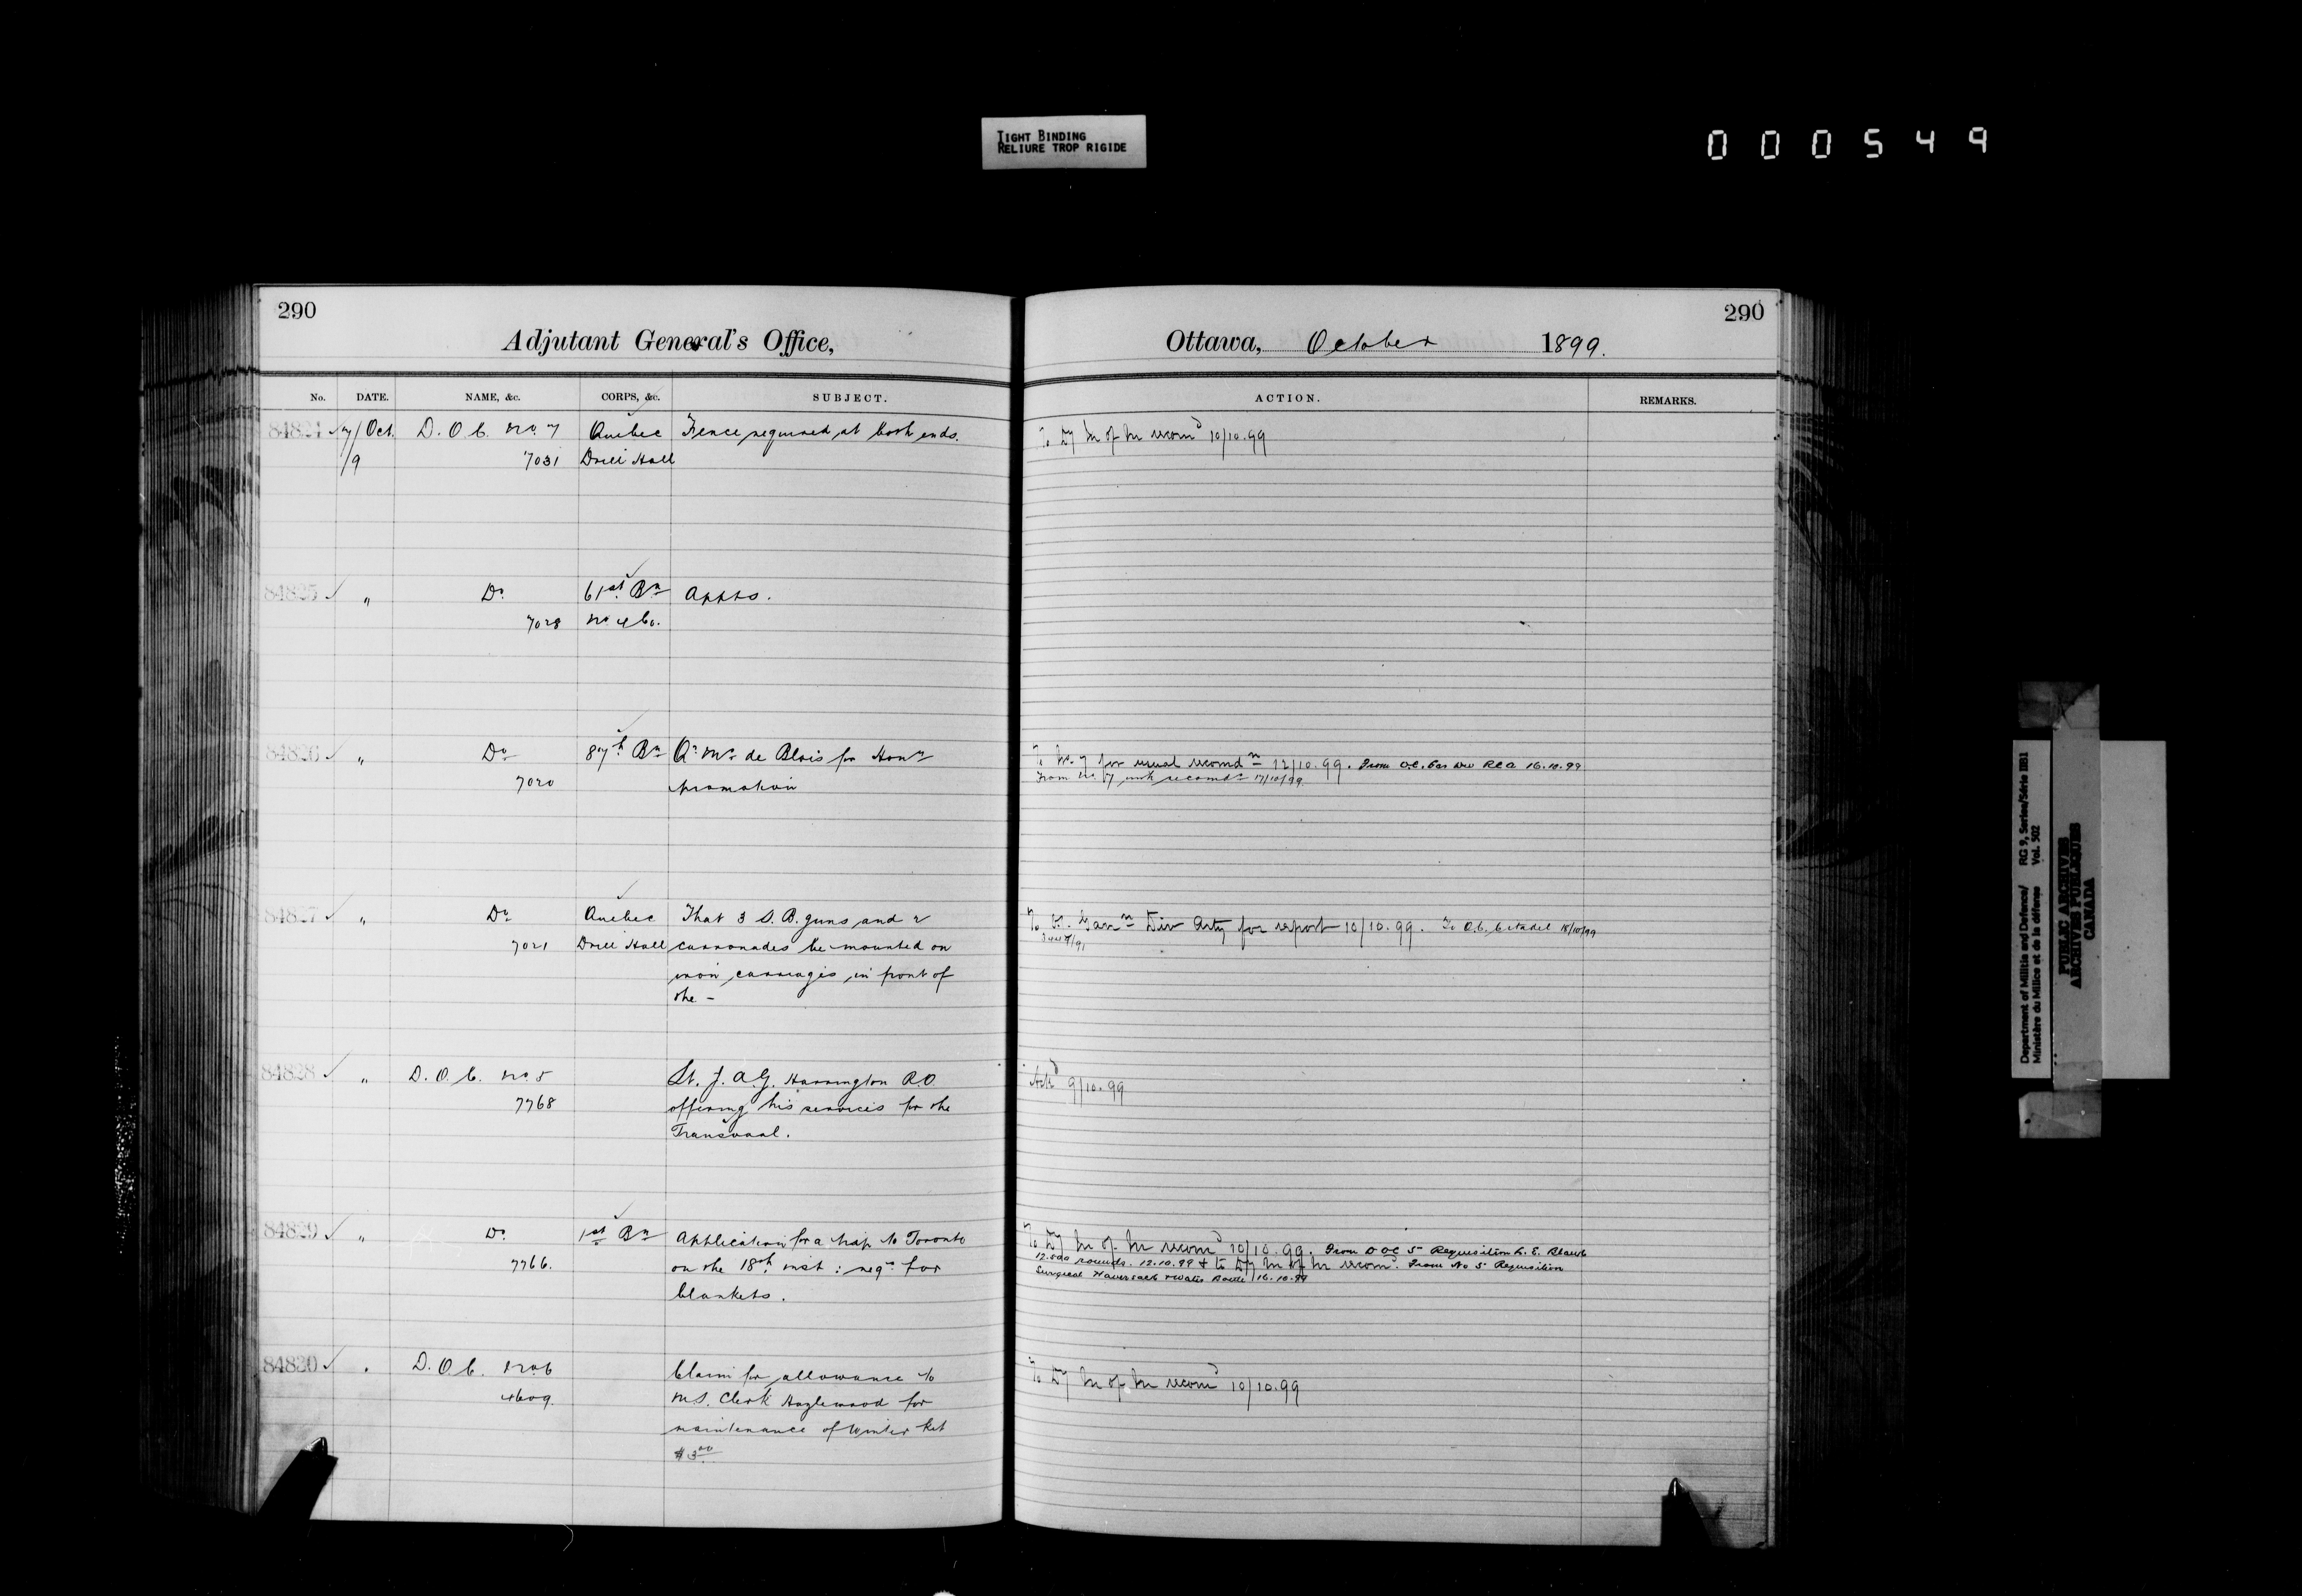 TIGHT BINDING
RELIURE TROP RIGIDE
000549
290
Adjutant General's Office,
No. DATE. NAME, &c. CORPS, &c. SUBJECT.
84824 7/Oct. D.O.C. No. 7 Quebec Fence required at both ends.
/9 7031 Drill Hall
84825 " Do. 61st Bn Appts.
7028 No 4 Co.
84826 " Do 87th Bn Qr. Mr. de Blois for Hony
7020 promotion
84827 " Do Quebec That 3 S.B. guns and 2
7021 Drill Hall carronades be mounted on
iron carriages in front of
the -
84828 " D.O.C. No. 5 Lt. J. A. G. Harrington R.O
7768 offering his services for the
Transvaal.
84829 " Do 1st Bn Application for a trip to Toronto
7766. on the 18th inst: reqn for
blankets.
84830 " D.O.C. No 6 Claim for allowance to
4609. M.S. Clerk Hazlewood for
maintenance of Winter Kit
$3.00
290
Ottawa, October 1899.
ACTION. REMARKS.
To Dy M of M recomd 10/10.99
To No. 7 for usual recomdn 12/10.99. From O.C. Gar Div RCA 16.10.99
From No. 7 with recomdn 17/10/99
To Garrn Div Arty for report 10/10.99. To O.C. Citadel 18/10/99
Ackd 9/10.99
To Dy M of M recomd 10/10.99. From D O C 5 Requisition L. E. Blank
12.500 rounds. 12.10.99 & to Dy M of M recomd. From No 5 Requisition
Surgical Haversack & Water Bottle 16.10.99
To Dy M of M recomd 10/10.99
Department of Militia and Defence/ RG 9, Series/Série IIB1
Ministère du Milice et de la défense Vol. 502
PUBLIC ARCHIVES
ARCHIVES PUBLIQUES
CANADA